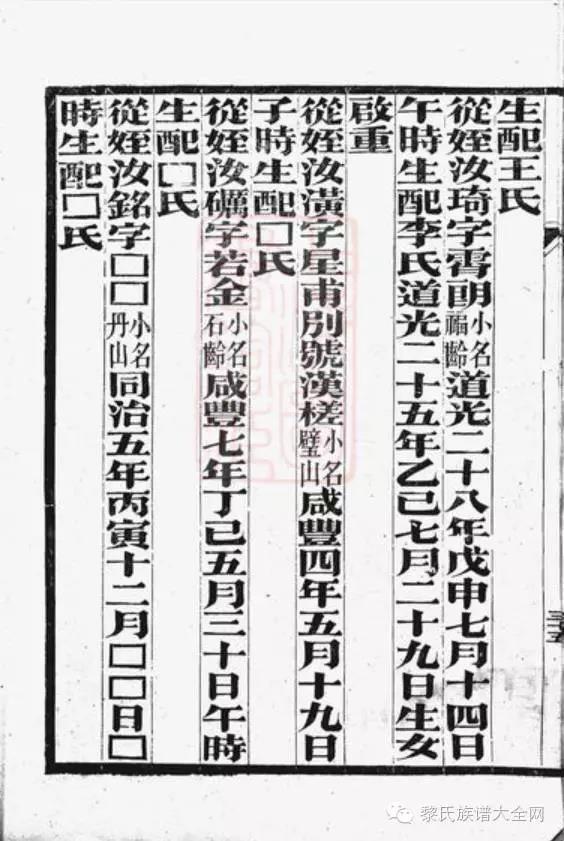 生配王氏
從姪汝琦字霱朗小名福齡道光二十八年戊申七月十四日
午時生配李氏道光二十五年乙巳七月二十九日生女
啟重
從姪汝潢字星甫別號漢槎小名璧山咸豐四年五月十九日
子時生配□氏
從姪汝礪字若金小名石齡咸豐七年丁巳五月三十日午時
生配□氏
從姪汝銘字□□小名丹山同治五年丙寅十二月□□日□
時生配□氏
三十五
黎氏族谱大全网